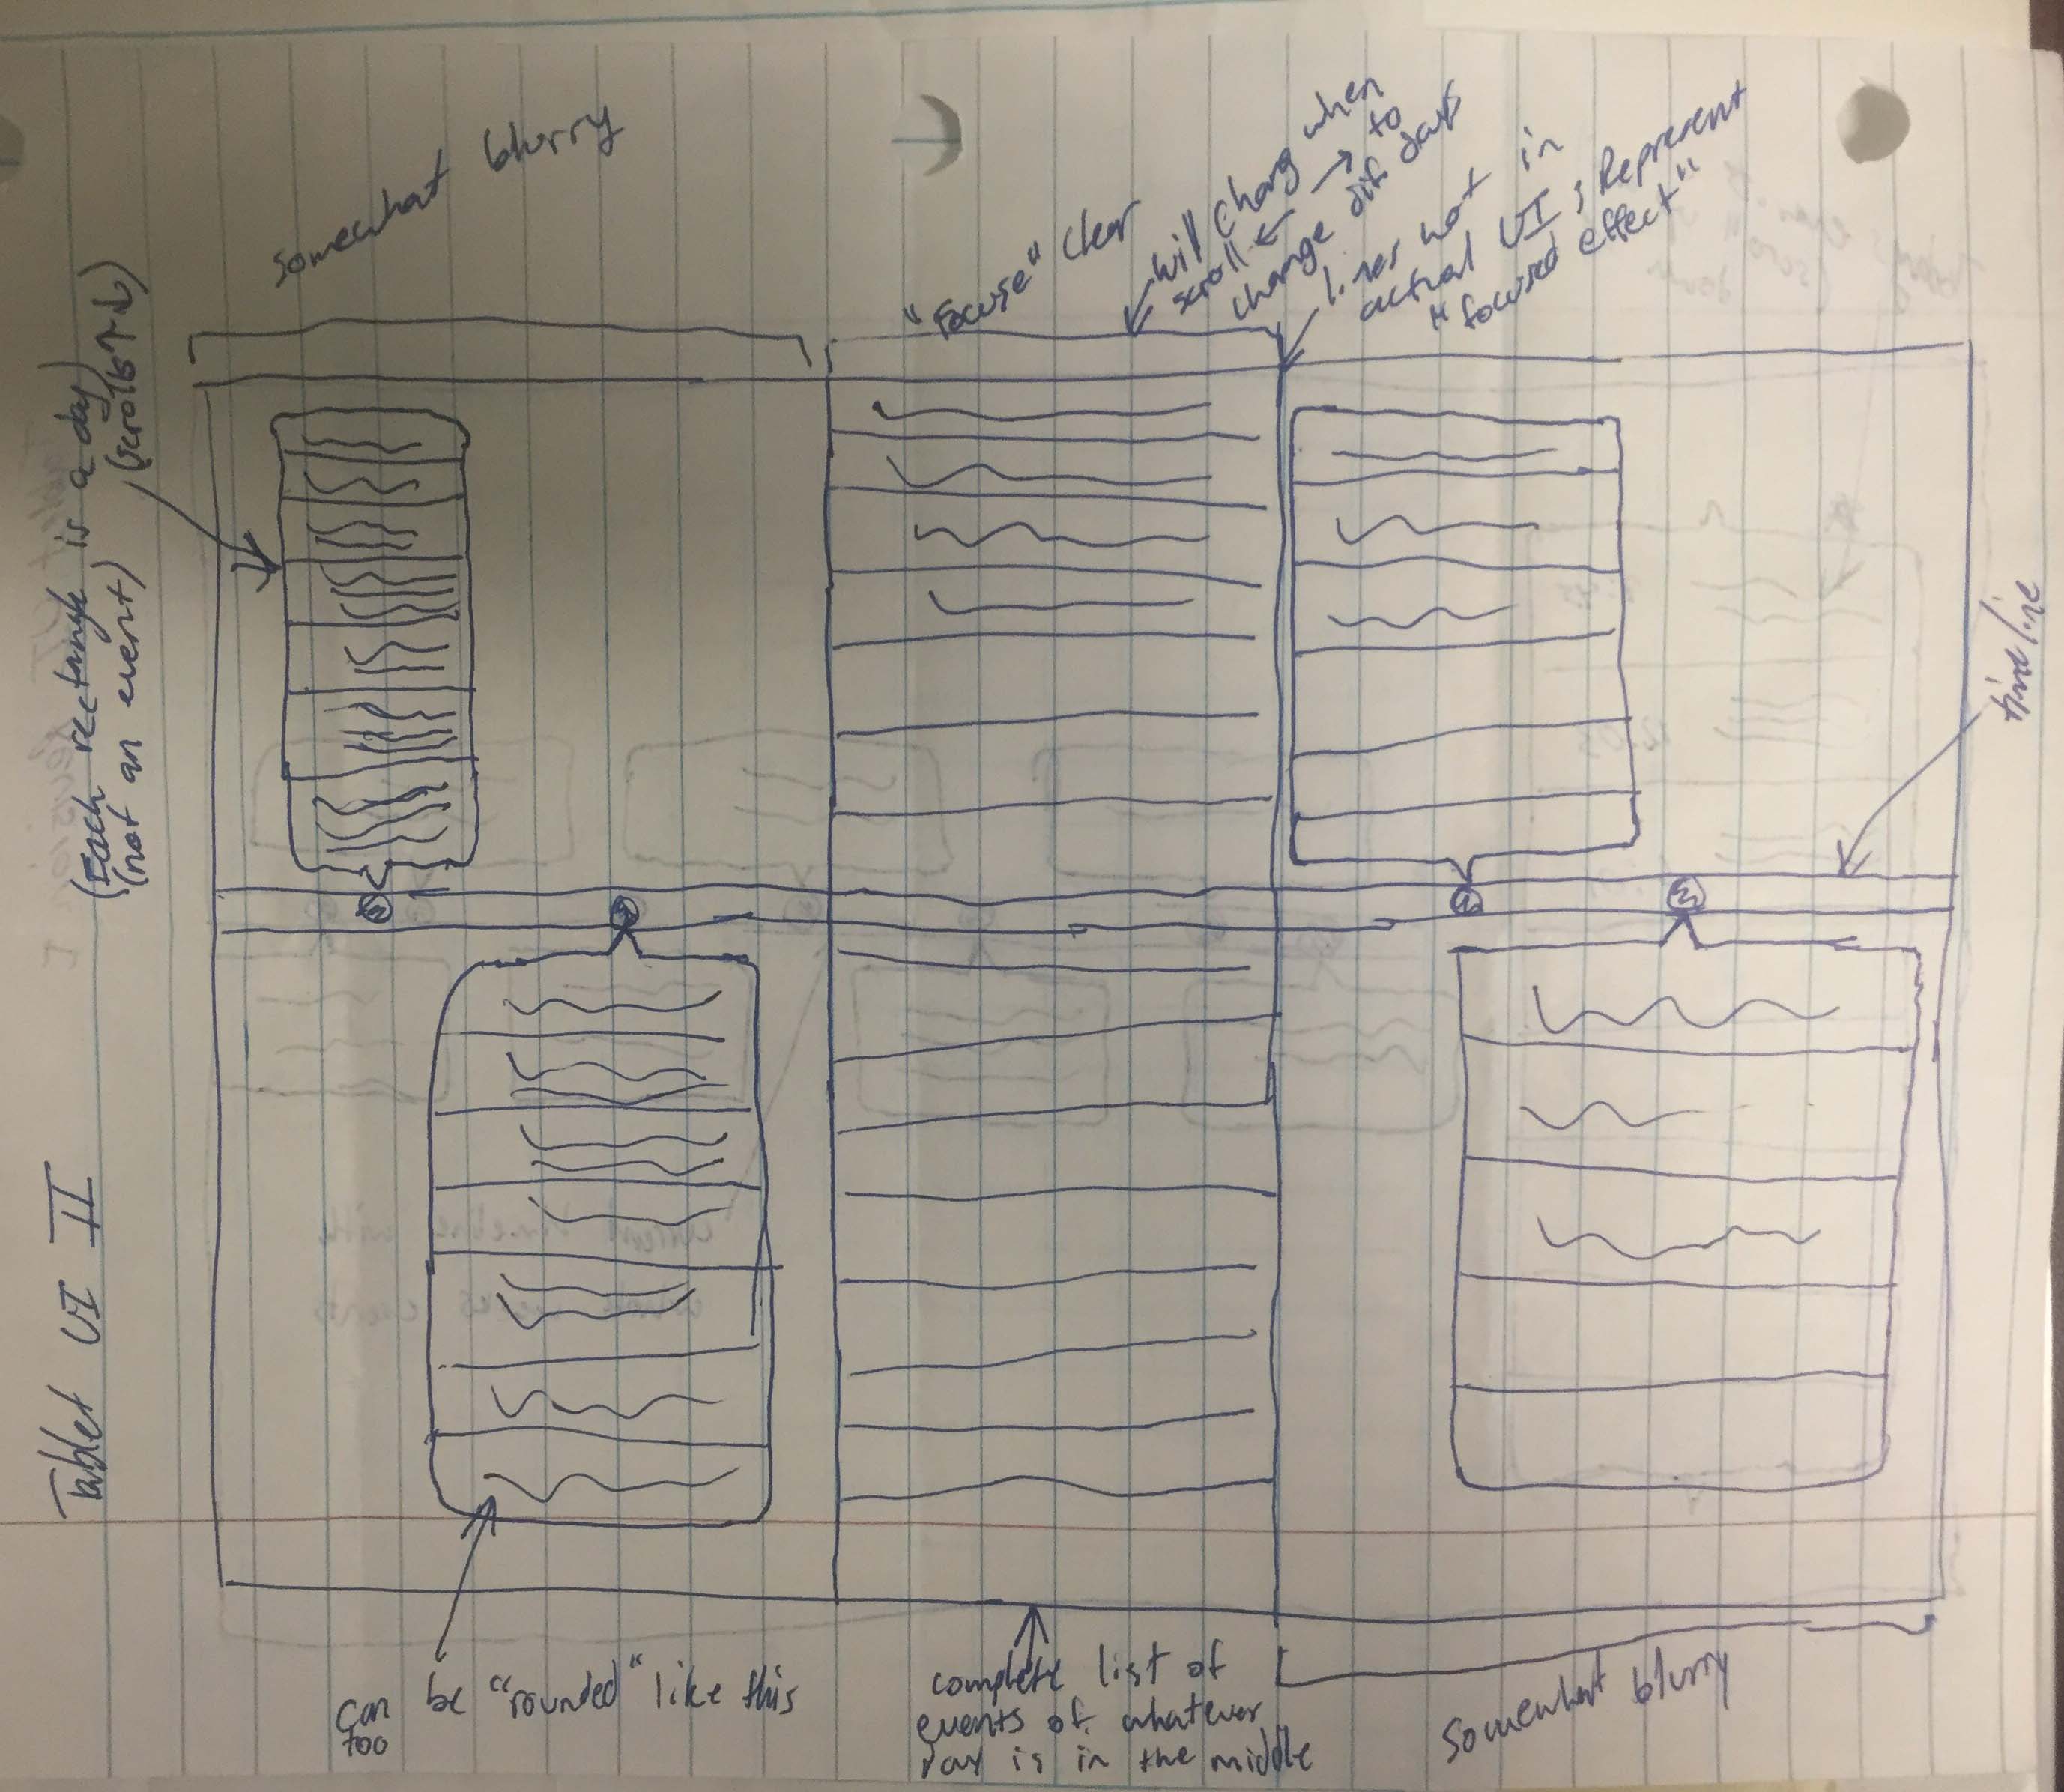 Tablet UI II
(Each rectangle is a day)
(not an event)
(scrolls ↑↓)
somewhat blurry
"Focuse" clear
will chang when
scroll ← → to
change dif. days
lines not in
actual UI; Represent
"focused effect"
timeline
can be "rounded" like this
too
complete list of
events of whatever
day is in the middle
somewhat blurry